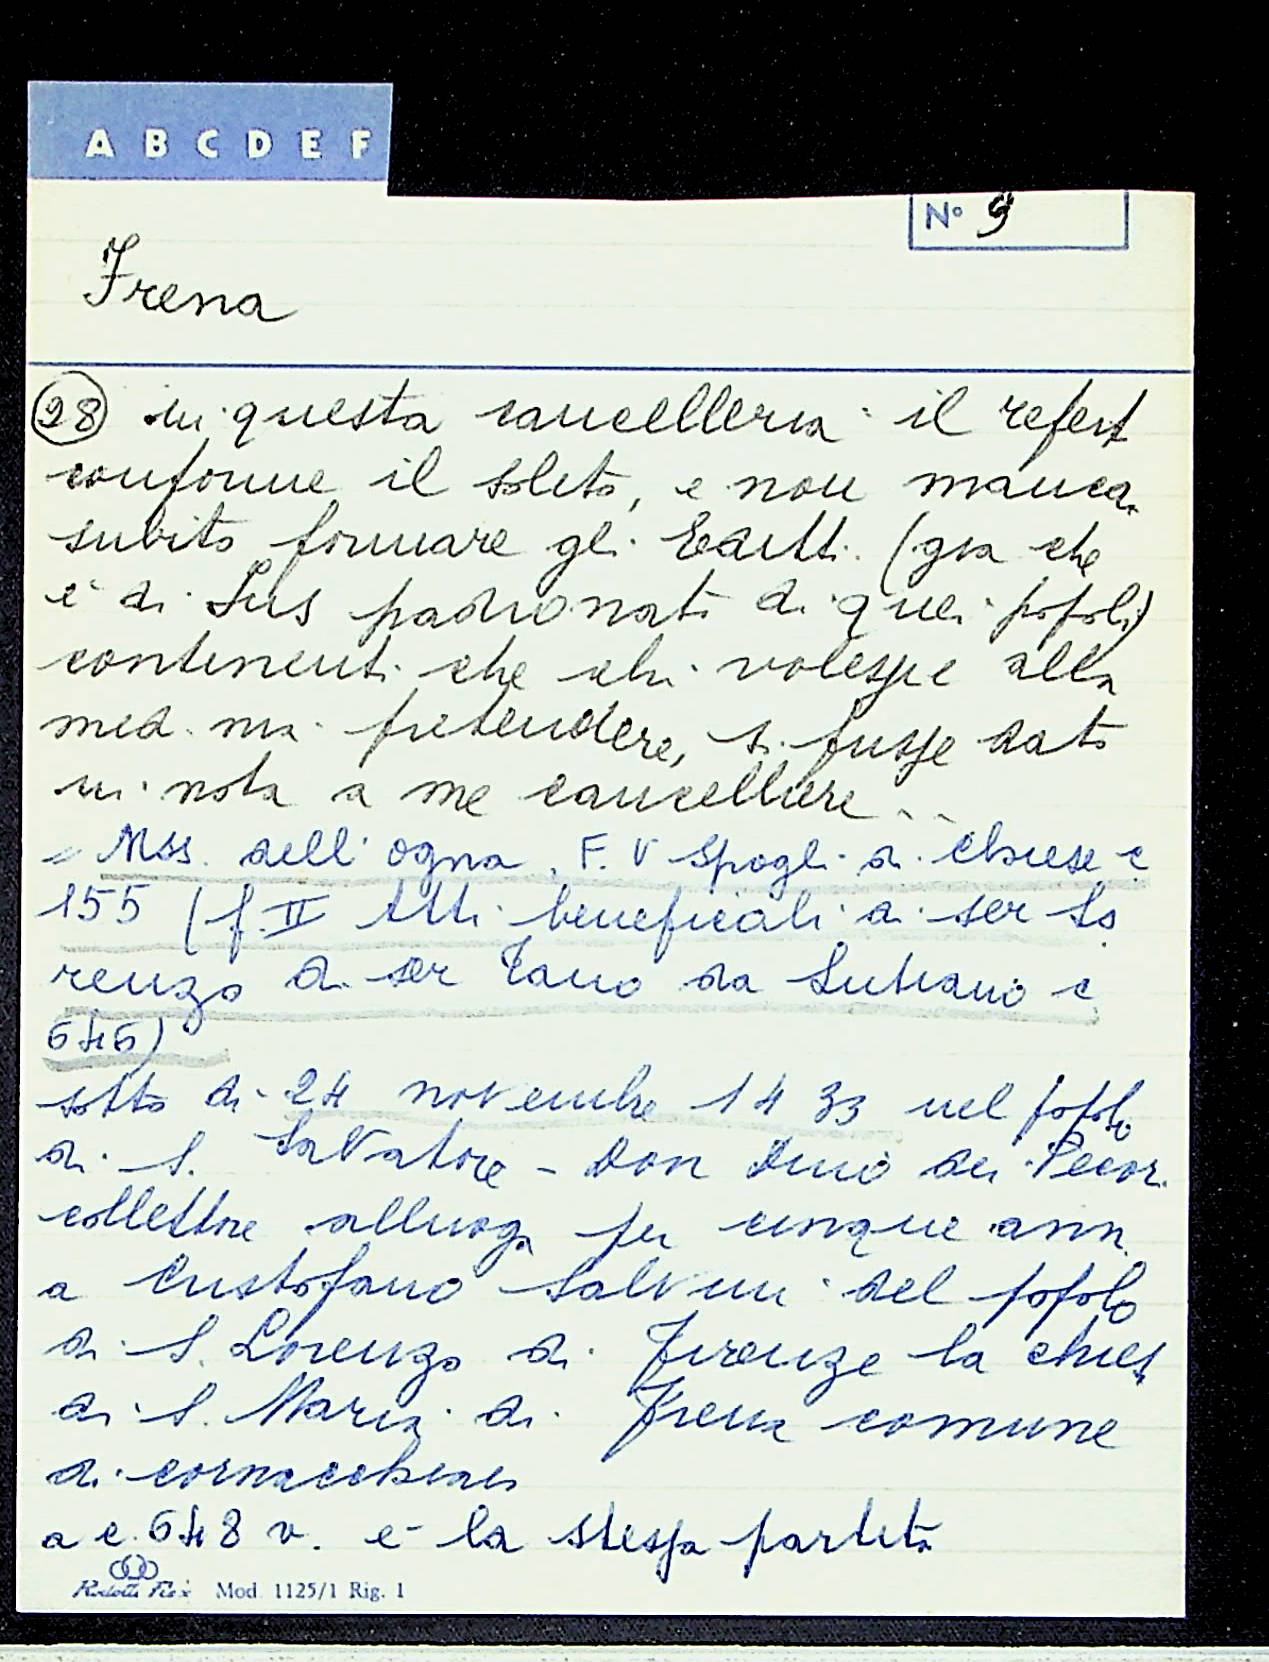 A B C D E F
N° 9
Frena
28 in questa cancelleria il refert
conforme il solito, e non manca
subito formare gli Editti (gia che
è di Jus padronato di quei popoli)
continenti che chi volesse alla
med. ma pretendere, si fusse dato
in nota a me cancelliere ..
= Mss. dell' ogna. F. V Spogli di Chiese c
155 (f. II Atti beneficiali di ser Lo
renzo di ser Tano da Lutiano c
646)
sotto di 24 novembre 1433 nel popolo
di S. Salvatore - Don Dino dei Pecori
collettore alluoga per cinque anni
a Cristofano Salvini del popolo
di S. Lorenzo di Firenze la chies
di S. Maria di Frena comune
di cornacchiaia
a c. 648 v. è la stessa partita
Mod. 1125/1 Rig. 1